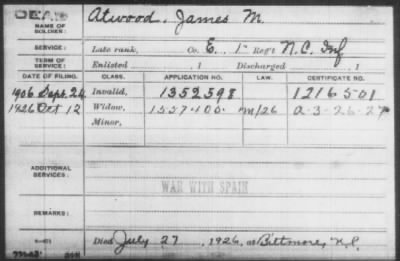 DEAD
NAME OF SOLDIER: Atwood, James M.
SERVICE: Late rank, Co. E, 1st Reg't N.C. Inf
TERM OF SERVICE: Enlisted , 1 Discharged , 1
DATE OF FILING. CLASS. APPLICATION NO. LAW. CERTIFICATE NO.
1906 Sept. 24 Invalid, 1352598 1216501
1926 Oct 12 Widow, 1557400 M/26 a-3-26-27
Minor,
ADDITIONAL SERVICES:
WAR WITH SPAIN
REMARKS:
Died July 27, 1926, at Biltmore, N.C.